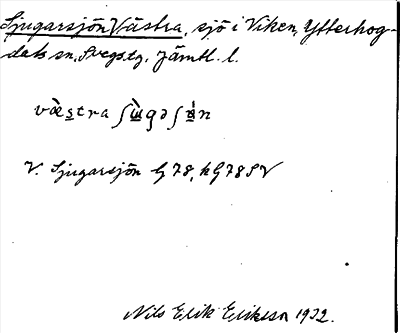 Sjugarsjön, Västra, sjö i Viken, Ytterhog-
dals sn, Svegs tg, Jämtl. l.
V. Sjugarsjön G 78, hG78SV
Nils Erik Eriksson 1932.